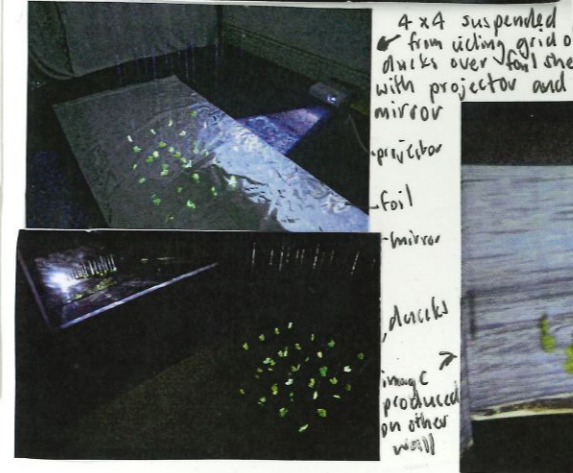 4x4 suspended
from grid o
ducks over foil she
with projector and
mirror
projector
foil
mirror
ducks
image
produced
on other
wall